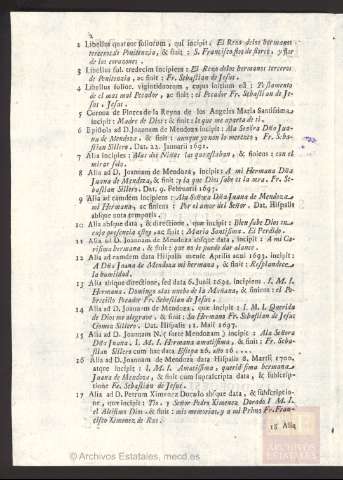 2 Libellus quatuor foliorum, qui incipit: El Reno delos hermanos
terceros de Penitenzia, & finit: S. Francisco
de los corazones.
3 Libellus fol. tredecim incipiens: El Reno delos hermanos terceros
de Penitenzia, ac finit: Fr. Sebastian de Jesus.
4 Libellus folior. vigintiduorum, cujus initium est: Testamento
de el mas mal Pecador, ac finit: el Pecador Fr. Sebastian de Je-
sus, Jesus.
5 Corona de Flores de la Reyna de los Angeles Maria Santissima,
incipit: Madre de Dios: & finit: lo que me aparta de ti.
6 Epistola ad D. Joannam de Mendoza incipit: Ala Señora Dña Jua-
na de Mendoza, & finit: aunque yo no lo merezca, Fr. Seba-
stian Sillero. Dat. 22. Januarii 1692.
7 Alia incipiens: Mas dos Niñas las quexstaban, & finiens: con el
mirar solo.
8 Alia ad D. Joannam de Mendoza, incipit: A mi Hermana Dña
Juana de Mendoza, & finit: y la que Dios sabe es la mea. Fr. Se-
bastian Sillero. Dat. 9. Februarii 1693.
9 Alia ad eamdem incipiens: Ala Señora Dña Juana de Mendoza
mi Hermana, ac finiens: Por el amor del Señor. Dat. Hispali
absque nota temporis.
10 Alia absque data, & directione, que incipit: Bien sabe Dios en
cuya presencia estoy, ac finit: Maria Santissima. El Perdido.
11 Alia ad D. Joannam de Mendoza absque data, incipit: A mi Ca-
rissima hermana, & finit: que no le puedo dar alcance.
12 Alia ad eamdem data Hispali mense Aprilis acui 1693. incipit:
A Dña Juana de Mendoza mi hermana, & finit: Resplandece
la humildad.
13 Alia absque directione, sed data 6. Junii 1694. incipiens I. M. I.
Hermana. Domingo alas ancho de la Mañana, & finiens: el Po-
brecillo Pecador Fr. Sebastian de Jesus.
14 Alia ad D. Joannam de Mendoza, que incipit: I. M. I. Querida
de Dios me alegrare, & finit: Su Hermano Fr. Sebastian de Jesus
Gomez Sillero. Dat. Hispalis 11. Maii 1697.
15 Alia ad D. Joannam N. (& forte Mendozam) incipit: Ala Señora
Dña Juana. I. M. I. Hermana amatissima, & finit: Fr. Seba-
stian Sillero cum hac data Estepa & 6. alto 16 ....
16 Alia ad D. Joannam de Mendoza data Hispalis 8. Martii 1700.
atque incipit: I. M. I. Amatissima, querid sima hermana
Juana de Mendoza, & finit cum suprascripta data, & subscriptio-
ne Fr. Sebastian de Jesus.
17 Alia ad D. Petrum Ximenez Dorado absque data, & subscriptio-
ne, que incipit: Tio, y Señor Pedro Ximenez Dorado I. M. I.
el Altissimo Dios. & finit: mis memorias, y a mi Primo Fr. Fran-
cisco Ximenez de Rus.
18 Alia
ARCHIVOS
ESTATALES
© Archivos Estatales, mecd.es